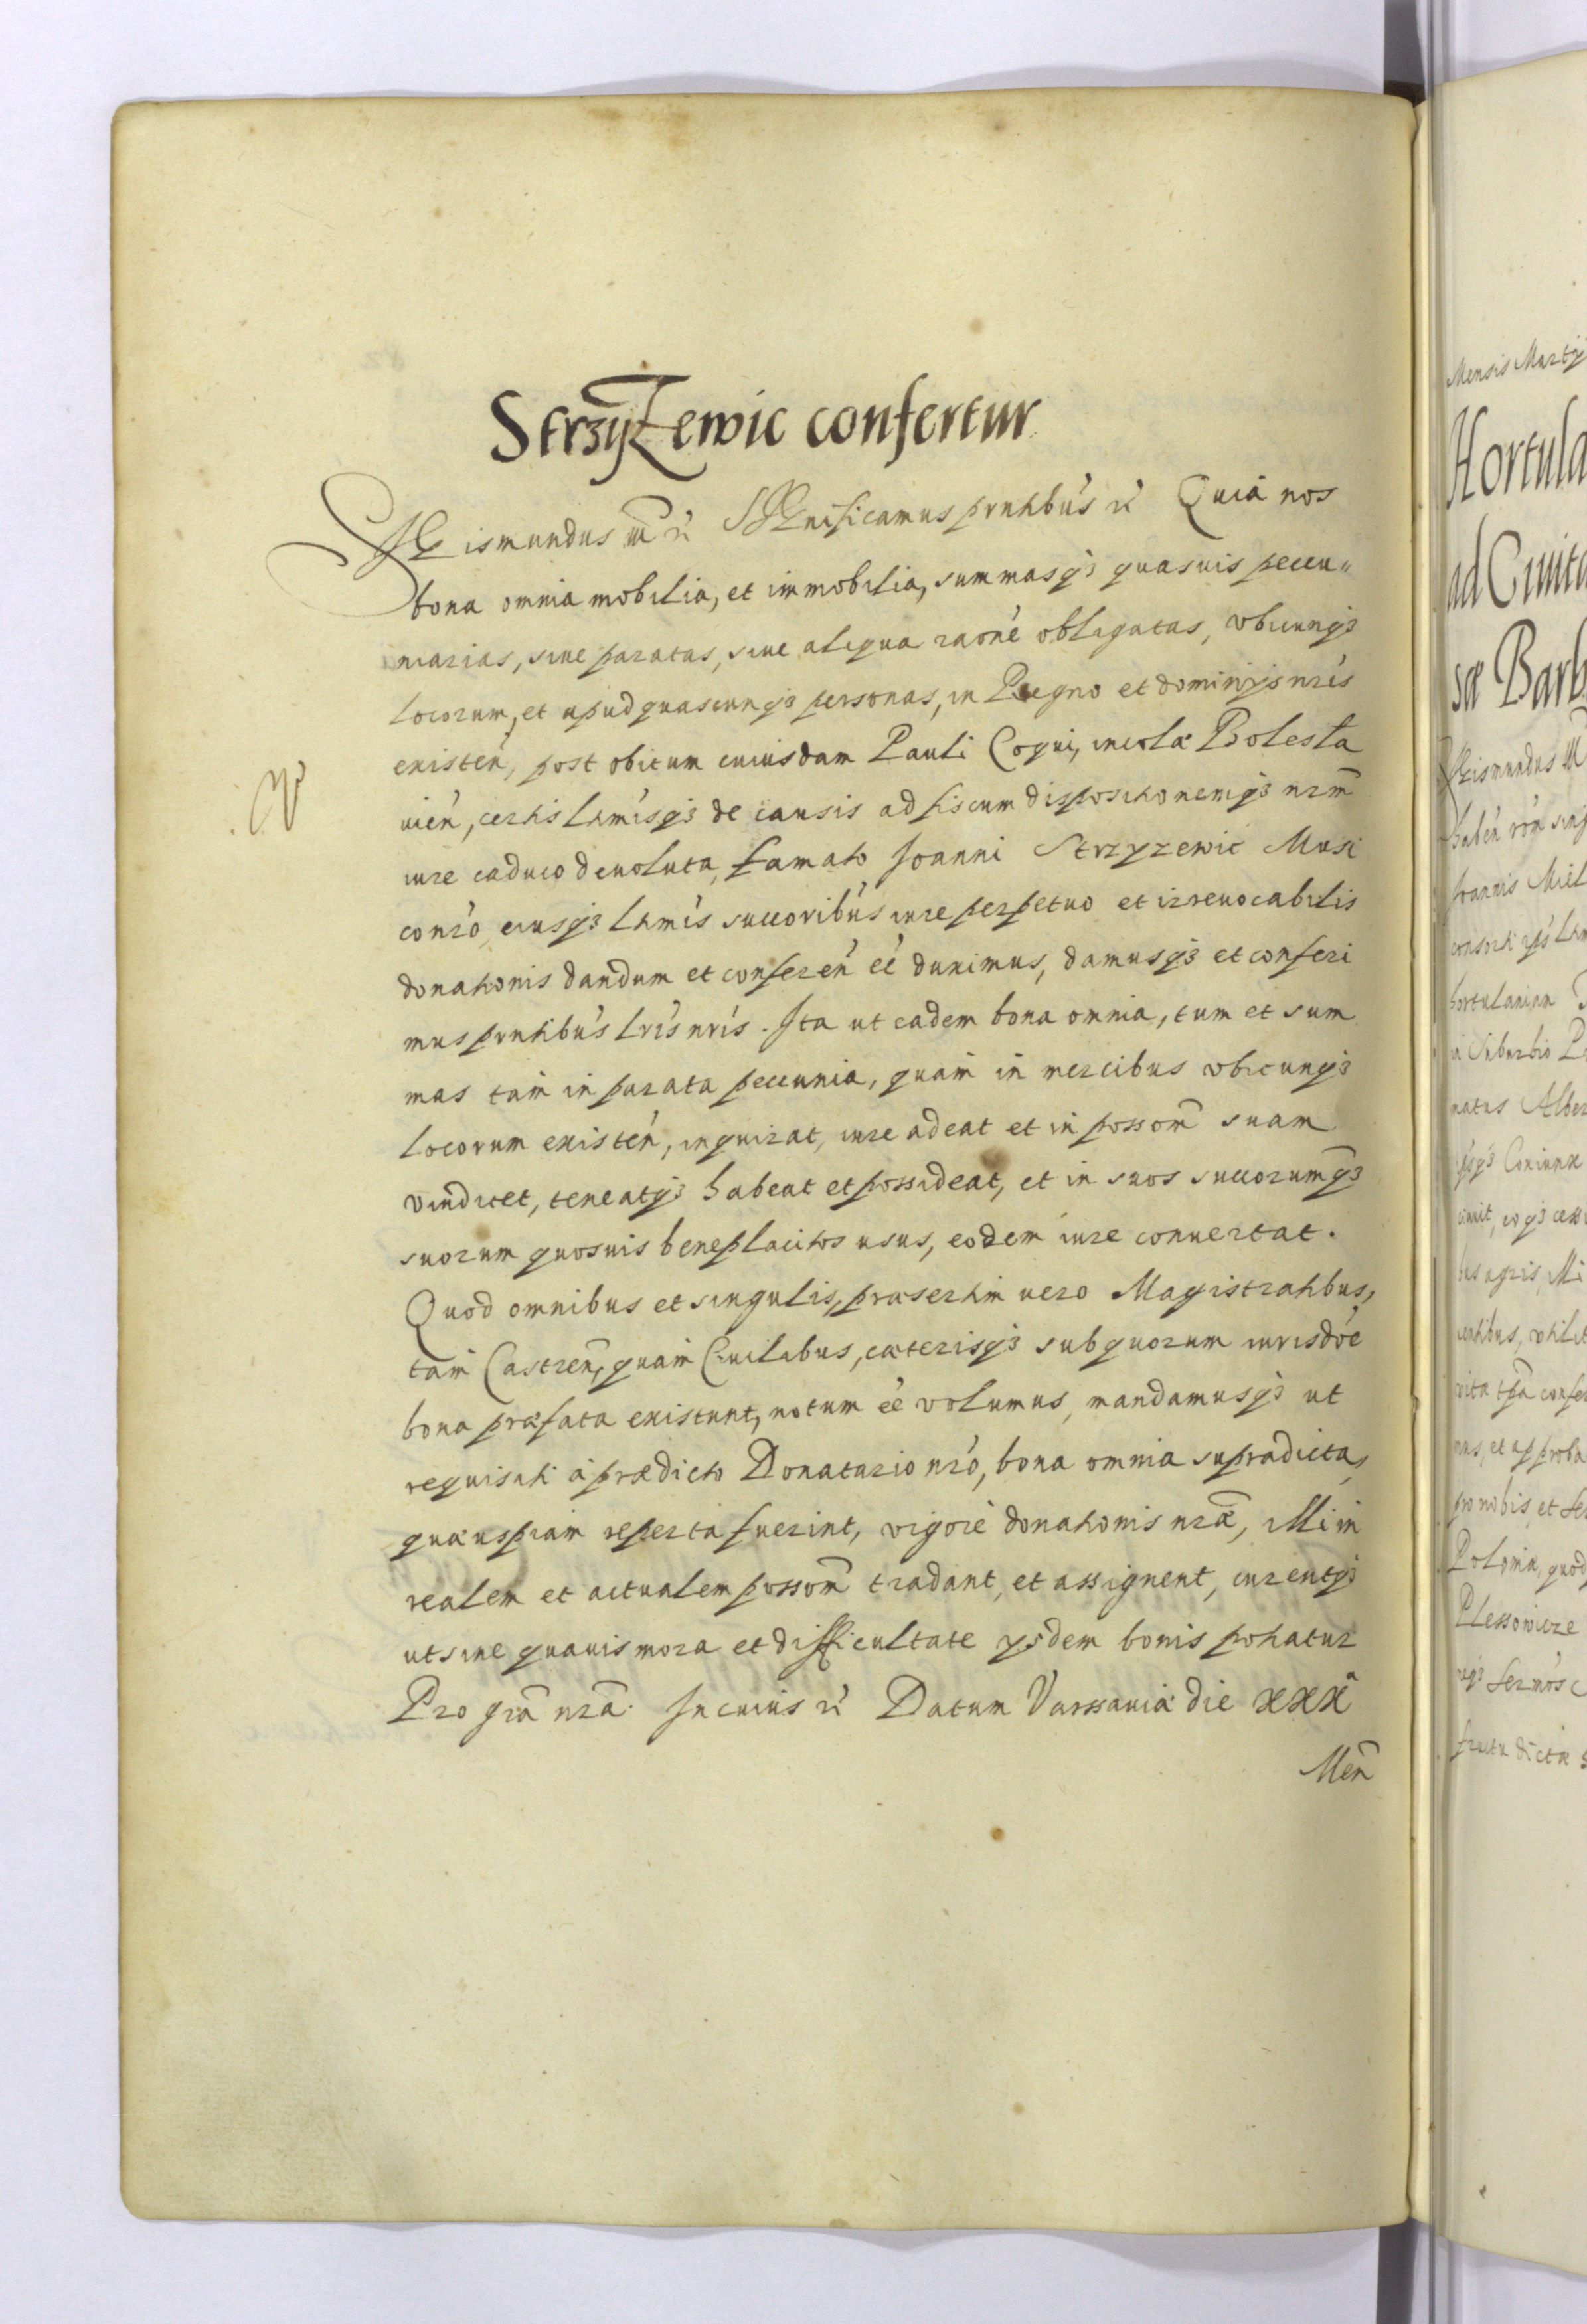 Strzyżewic confertur
Sigismundus III rc̃ Significamus prntibus rc̃ Quia nos
bona omnia mobilia, et immobilia, summasqꝫ quasuis pecu„
niarias, siue paratas, siue aliqua raone obligatas, vbicunqꝫ
locorum, et apud quascunqꝫ personas, in Regno et dominijs nris
existen, post obitum cuiusdam Pauli Coqui, incolæ Bolesla
uien, certis ltmisqꝫ de causis ad fiscum dispositionemqꝫ nrm̃
iure caduco deuoluta, famato Joanni Strzyzewic Musi
co nro eiusqꝫ ltmis succoribus iure perpetuo et irreuocabilis
donationis dandum et conferen ẽe duximus, damusqꝫ et conferi
mus prntibus lris nris. Ita ut eadem bona omnia, tum et sum
mas tam in parata peccunia, quam in mercibus vbicunqꝫ
locorum existen, inquirat, iure adeat et in possom̃ suam
vindicet, teneatqꝫ habeat et possideat, et in suos succorumqꝫ
suorum quosuis beneplacitos usus, eodem iure conuertat.
Quod omnibus et singulis, præsertim uero Magistratibus,
tam Castren, quam Ciuilibus, cæterisqꝫ sub quorum iurisdõe
bona præfata existunt, notum ẽe volumus, mandamusqꝫ ut
requisiti à prædicto Donatario nro, bona omnia supradicta,
quæuspiam reperta fuerint, vigore donationis nræ, illi in
realem et actualem possom̃ tradant, et assignent, curentqꝫ
ut sine quauis mora et difficultate ysdem bonis potiatur
Pro gra͂ nra͂. In cuius rc̃ Datum Varssauiæ die XXX
Men̄
Mensis Martij
Hortula
ad Ciuita
sæ Barb
Sigismundus III
Joannis Miel
hortulaniam
in Suburbio
natus Alber
Polonia, quod
Plessowicze